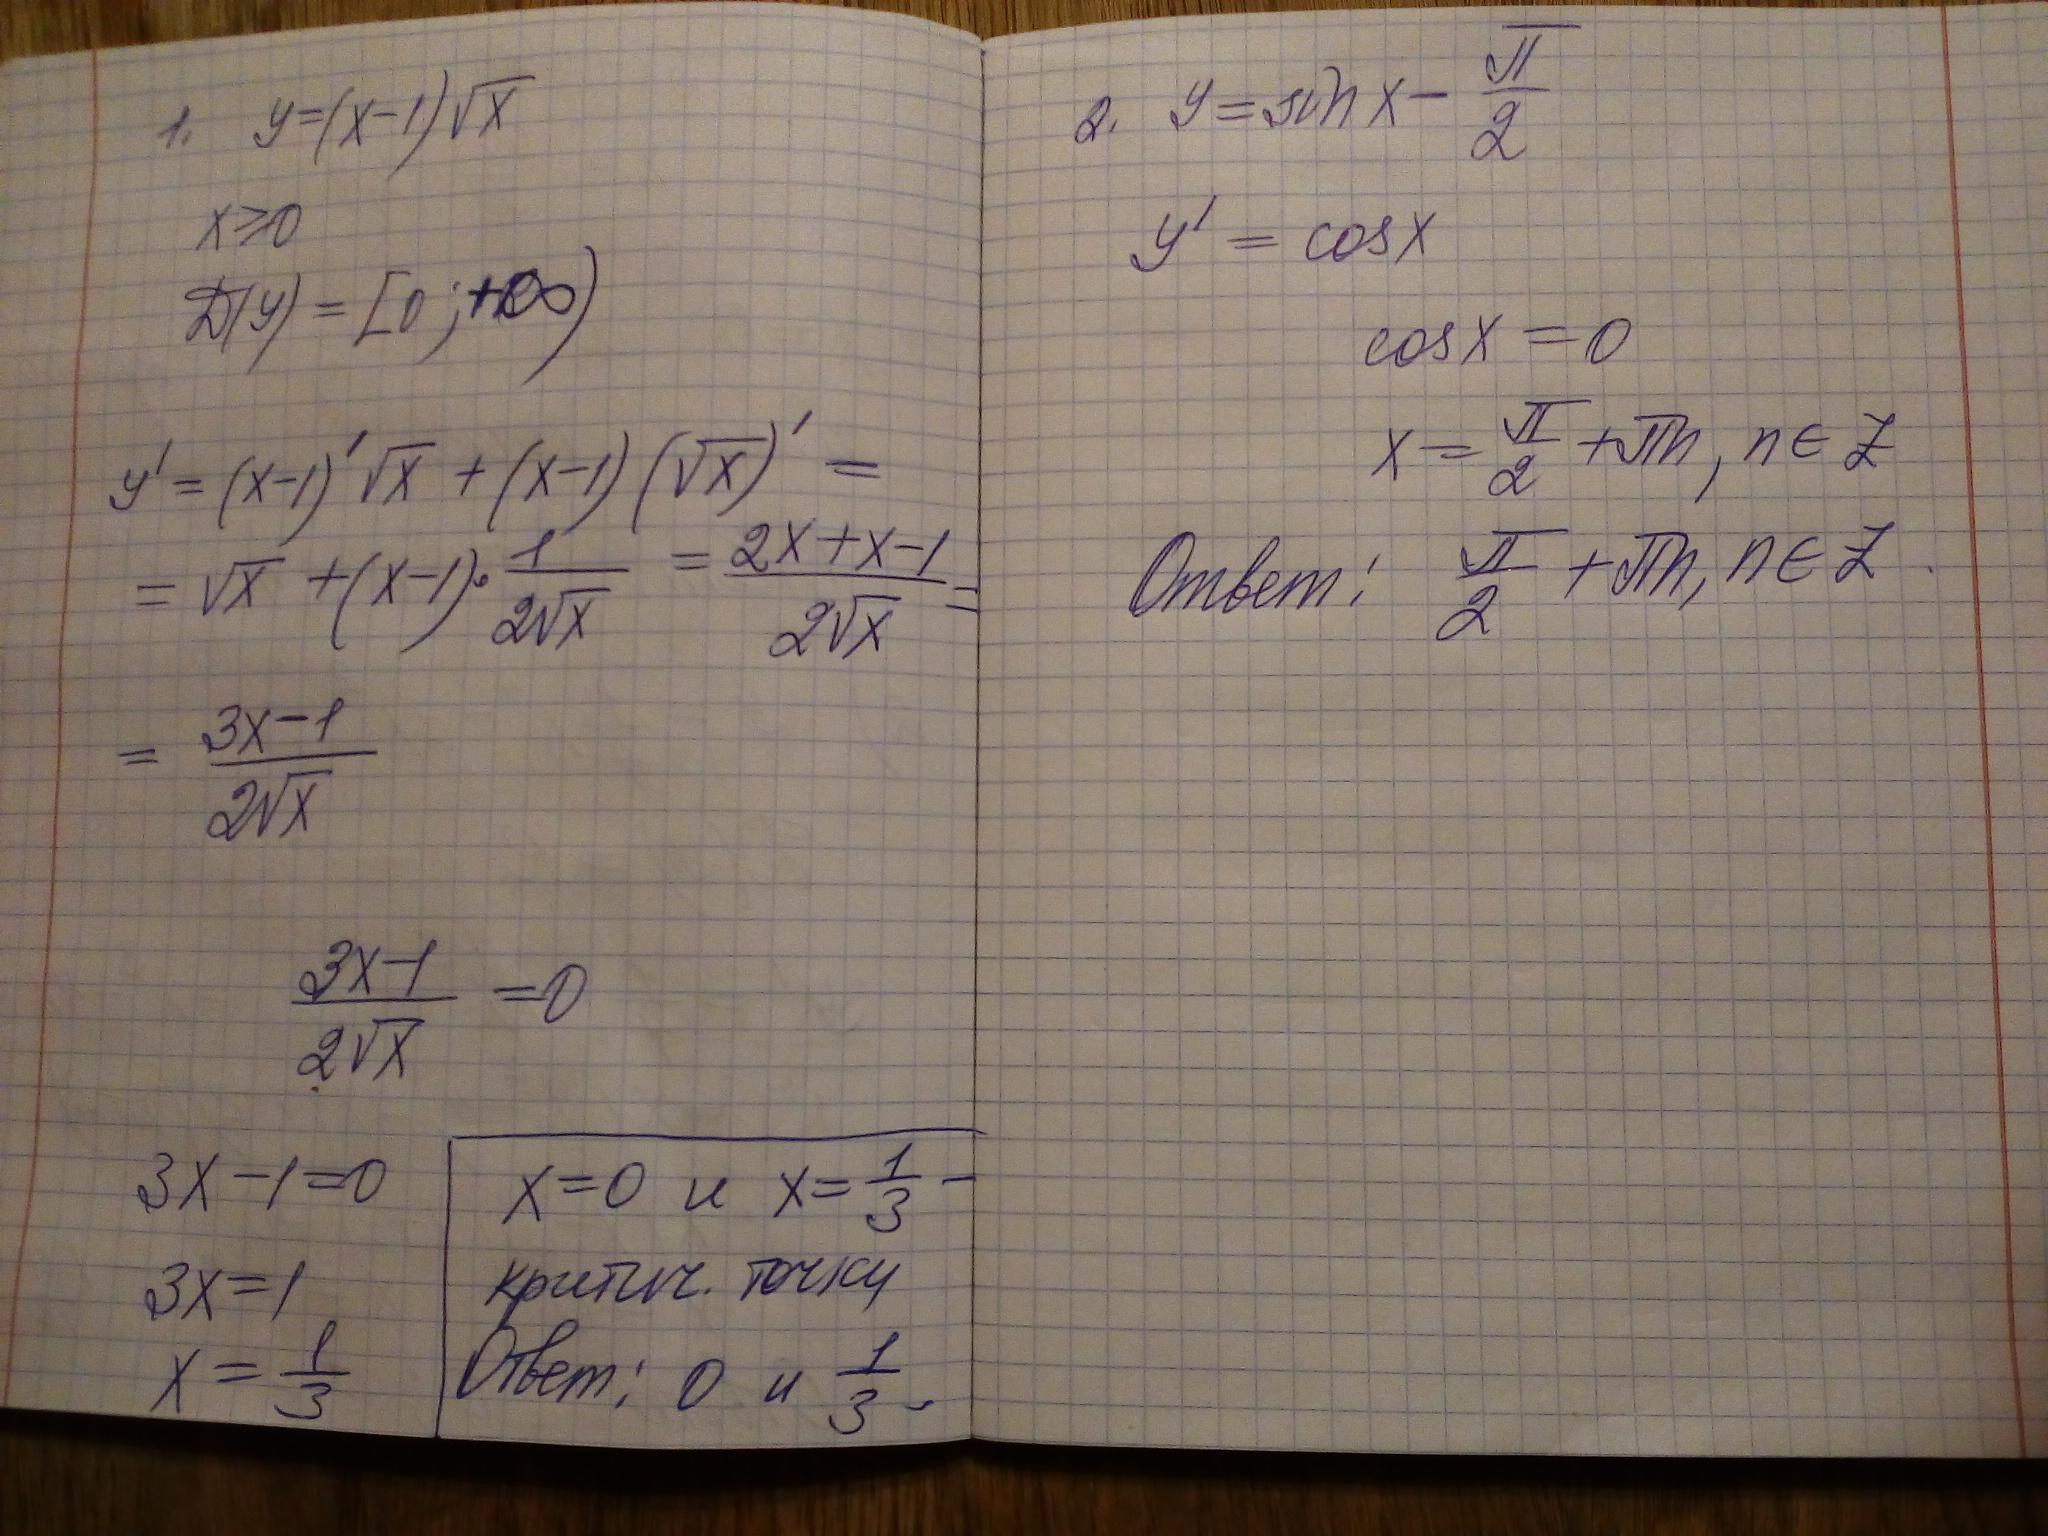 1. y=(x-1)√x
x≥0
D(y) = [0;+∞)
y' = (x-1)'√x + (x-1)(√x)' =
= √x + (x-1)·1/(2√x) = (2x+x-1)/(2√x) =
= (3x-1)/(2√x)
(3x-1)/(2√x) =0
3x-1=0
3x=1
x = 1/3
x=0 и x=1/3 -
критич. точки
Ответ: 0 и 1/3.
2. y=sin x - π/2
y' = cosx
cosx =0
x= π/2 +πn, n∈Z
Ответ: π/2 +πn, n∈Z.